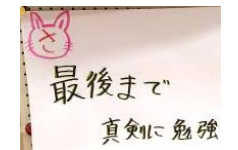 最後まで
真剣に勉強